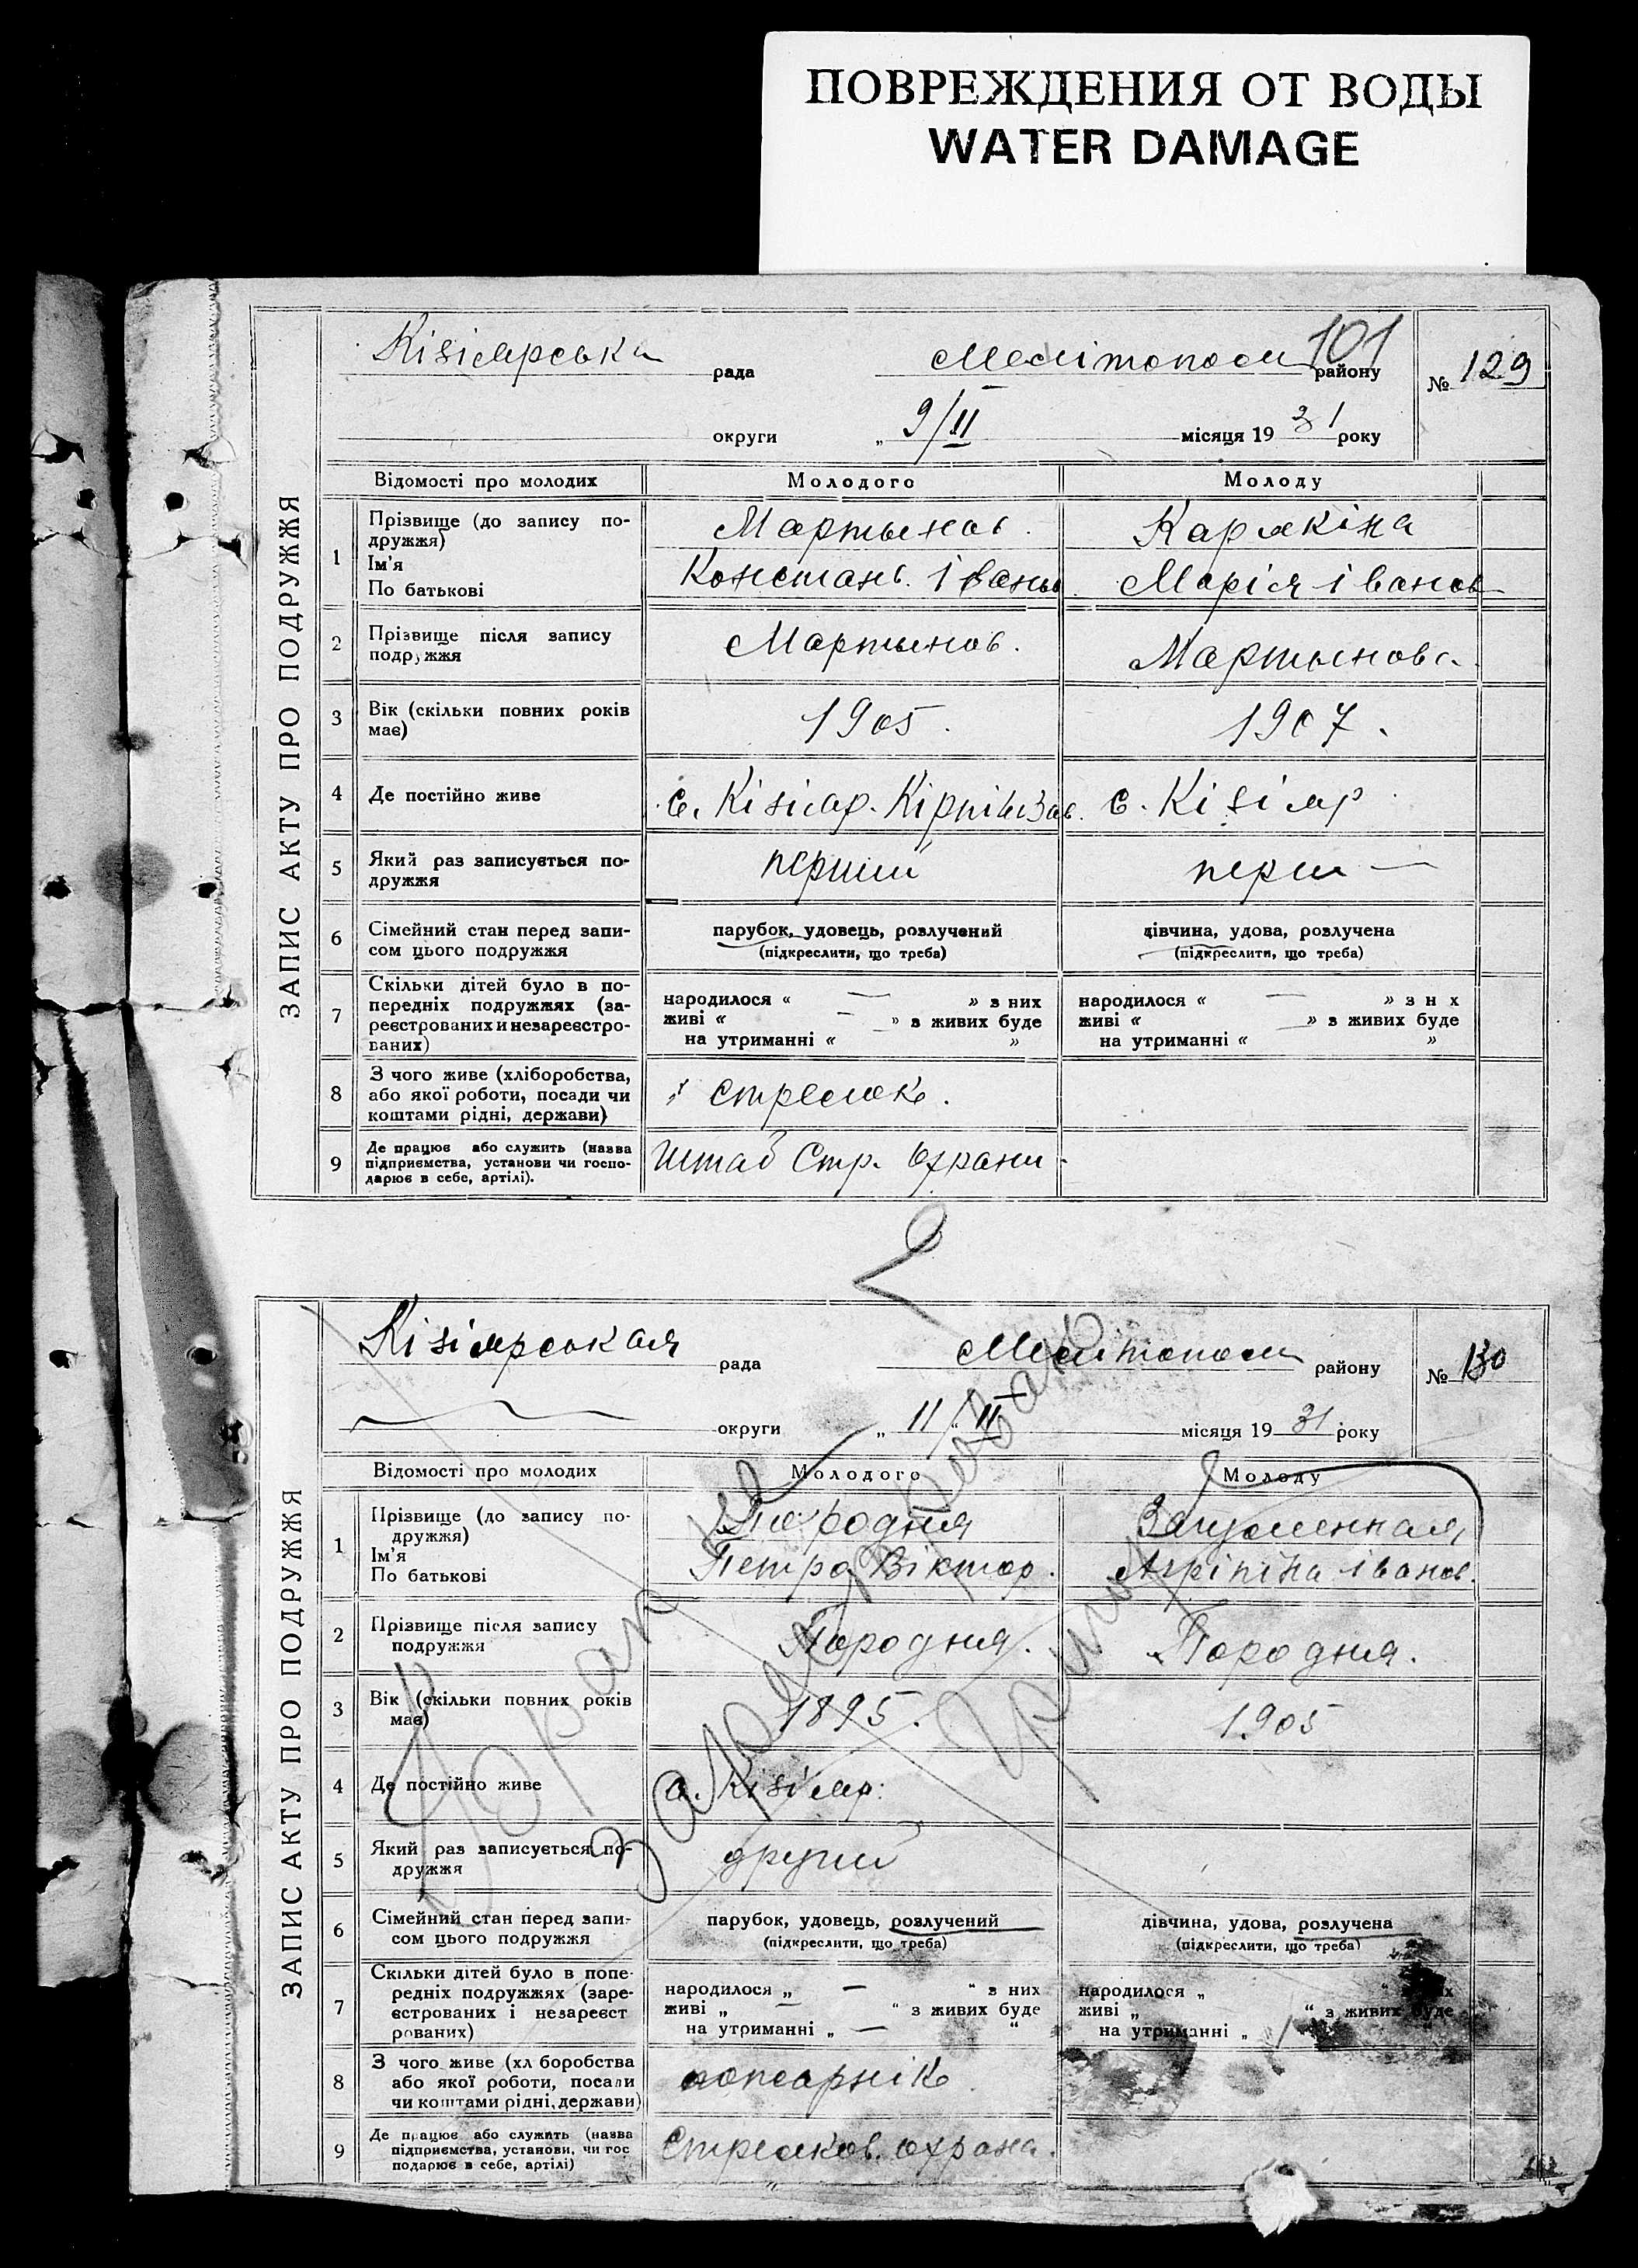 ПОВРЕЖДЕНИЯ ОТ ВОДЫ
WATER DAMAGE
ЗАПИС АКТУ ПРО ПОДРУЖЖЯ
Кізіярська рада Мелітопол району 101 № 129
округи „ 9/II місяця 19 31 року
Відомості про молодих Молодого Молоду
1 Прізвище (до запису по-
дружжя) Мартынов. Карякіна
Ім'я
По батькові Констант. Іванов. Марія Іванов
2 Прізвище після запису
подружжя Мартынов. Мартынова.
3 Вік (скільки повних років
має) 1905. 1907.
4 Де постійно живе с. Кізіяр. Кірпіч Зав. с. Кізіяр
5 Який раз записується по-
дружжя перший перш —
6 Сімейний стан перед запи-
сом цього подружжя парубок, удовець, розлучений дівчина, удова, розлучена
(підкреслити, що треба) (підкреслити, що треба)
7 Скільки дітей було в по-
передніх подружжях (за-
реєстрованих и незареєстро-
ваних)
народилося « — » з них народилося « — » з н х
живі « — » з живих буде живі « — » з живих буде
на утриманні « » на утриманні « »
8 З чого живе (хліборобства,
або якої роботи, посади чи
коштами рідні, держави) стрелок.
9 Де працює або служить (назва
підприємства, установи чи госпо-
дарює в себе, артілі). Штаб Стр. Охрани
2
ЗАПИС АКТУ ПРО ПОДРУЖЖЯ
Кізіярська я рада Мелітопол району № 130
округи „ 11/II місяця 19 31 року
Відомості про молодих Молодого Молоду
1 Прізвище (до запису по-
дружжя) Породня
Ім'я
По батькові Петро Віктор. Агріпіна Іванов.
2 Прізвище після запису
подружжя Породня. Породня.
3 Вік (скільки повних років
має) 1895. 1905
4 Де постійно живе с. Кізіяр.
5 Який раз записується по-
дружжя другий
6 Сімейний стан перед запи-
сом цього подружжя парубок, удовець, розлучений дівчина, удова, розлучена
(підкреслити, що треба) (підкреслити, що треба)
7 Скільки дітей було в попе-
редніх подружжях (заре-
єстрованих і незареєст
рованих)
народилося „ — “ з них народилося „
живі „ — “ з живих буде живі „ “ з живих буде
на утриманні „ — “ на утриманні „
8 З чого живе (хл боробства
або якої роботи, посади
чи коштами рідні, держави) пожарнік
9 Де працює або служить (назва
підприємства, установи, чи гос
подарює в себе, артілі) Стрелков. охрана.